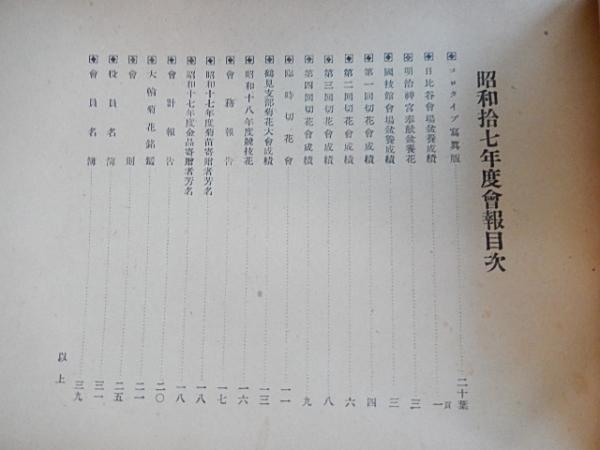 昭和拾七年度會報目次
コロタイプ寫眞版 二十葉
日比谷會場盆養成績 一頁
明治神宮奉献盆養花 三
國技館會場盆養成績 三
第一回切花會成績 四
第二回切花會成績 六
第三回切花會成績 八
第四回切花會成績 九
臨時切花會 一一
鶴見支部菊花大會成績 一三
昭和十八年度競技花 一六
會務報告 一七
昭和十七年度菊苗寄贈者芳名 一八
昭和十七年度金品寄贈者芳名 一八
會計報告 二〇
大輪菊花銘鑑 二一
會則 二五
役員名簿 三一
會員名簿 三九
以上